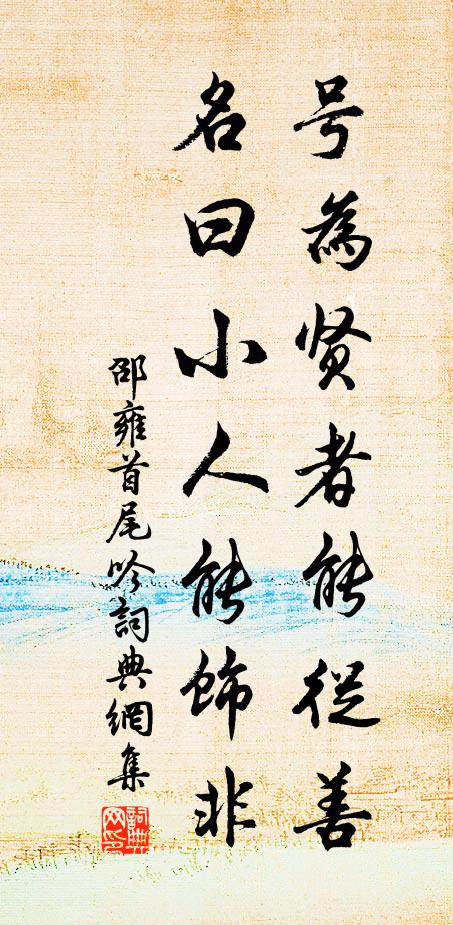 号為贤者能從善
名曰小人能飾非
邵雍首尾吟詞典網集
詞典網印